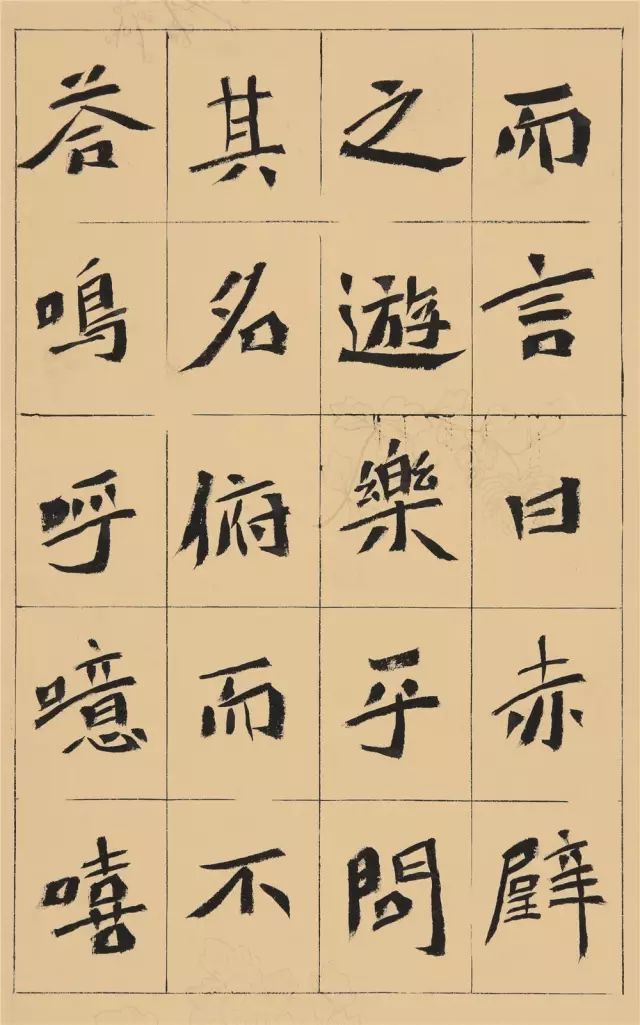 而言曰赤壁
之遊樂乎問
其名俯而不
荅嗚呼噫嘻